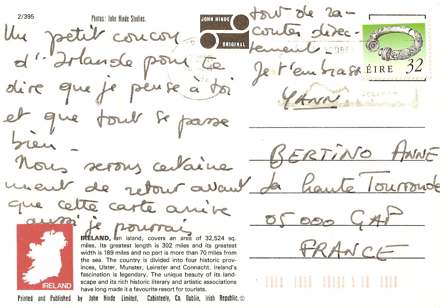 2/395
Photos: John Hinde Studios.
JOHN HINDE
ORIGINAL
Un petit coucou
d'Irlande pour te
dire que je pense à toi
et que tout se passe
bien.
Nous serons certaine
ment de retour avant
que cette carte arrive
aussi je pourrais
tout te ra-
conter direc-
tement.
Je t'embrasse
YANN
ÉIRE 32
BERTINO ANNE
La haute Tourronde
05000 GAP
FRANCE
IRELAND
IRELAND, an island, covers an area of 32,524 sq.
miles. Its greatest length is 302 miles and its greatest
width is 189 miles and no part is more than 70 miles from
the sea. The country is divided into four historic prov-
inces, Ulster, Munster, Leinster and Connacht. Ireland's
fascination is legendary. The unique beauty of its land-
scape and its rich historic literary and artistic associations
have long made it a favourite resort for tourists.
Printed and Published by John Hinde Limited, Cabinteely, Co. Dublin, Irish Republic.